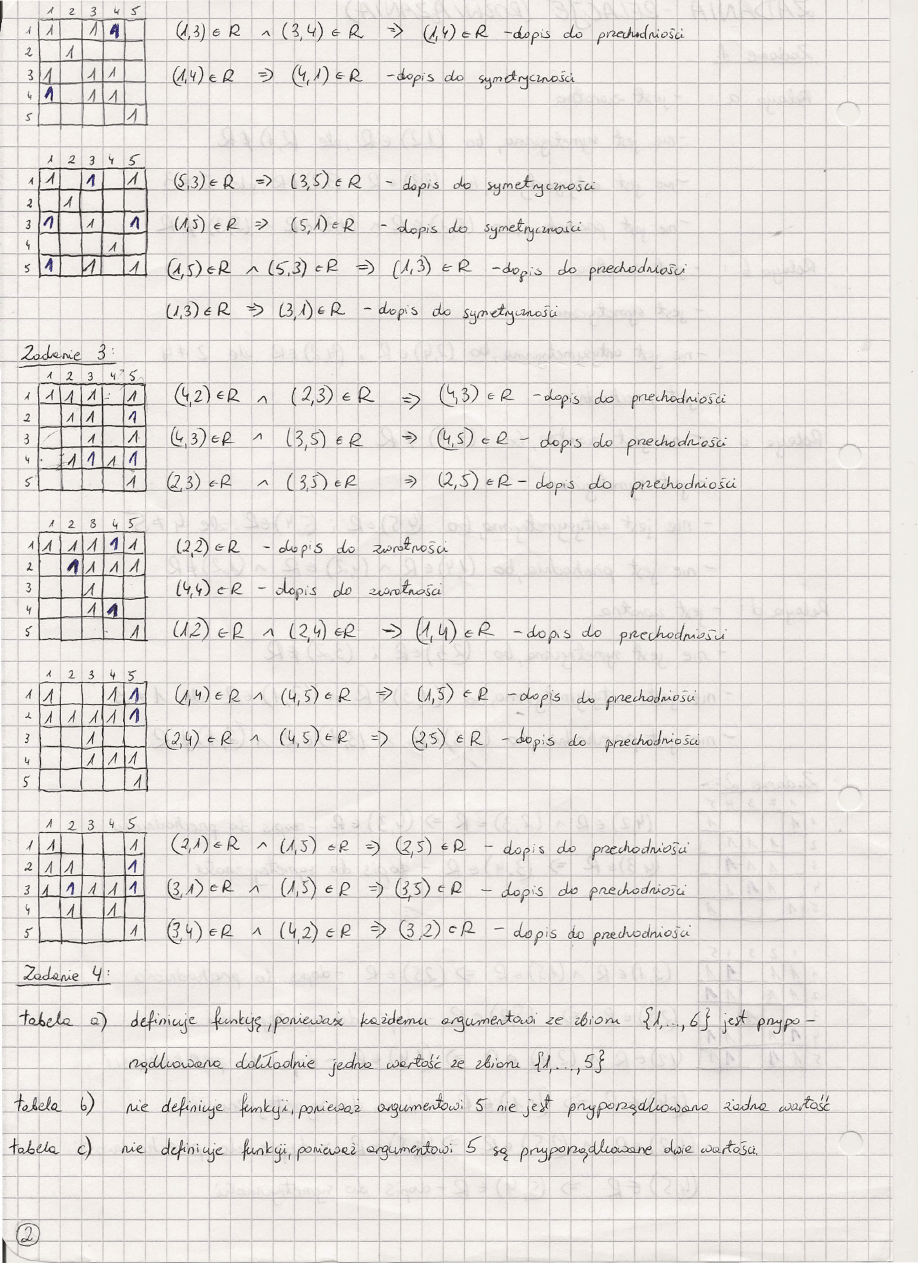 1 2 3 4 5
1 1 1 1
2 1
3 1 1 1
4 1 1 1
5 1
(1,3) ∈ R ∧ (3,4) ∈ R ⇒ (1,4) ∈ R - dopis do przechodniości
(1,4) ∈ R ⇒ (4,1) ∈ R - dopis do symetryczności
1 2 3 4 5
1 1 1 1
2 1
3 1 1 1
4 1
5 1 1 1
(5,3) ∈ R ⇒ (3,5) ∈ R - dopis do symetryczności
(1,5) ∈ R ⇒ (5,1) ∈ R - dopis do symetryczności
(1,5) ∈ R ∧ (5,3) ∈ R ⇒ (1,3) ∈ R - dopis do przechodniości
(1,3) ∈ R ⇒ (3,1) ∈ R - dopis do symetryczności
Zadanie 3:
1 2 3 4 5
1 1 1 1 1
2 1 1 1
3 1 1
4 1 1 1 1
5 1
(4,2) ∈ R ∧ (2,3) ∈ R ⇒ (4,3) ∈ R - dopis do przechodniości
(4,3) ∈ R ∧ (3,5) ∈ R ⇒ (4,5) ∈ R - dopis do przechodniości
(2,3) ∈ R ∧ (3,5) ∈ R ⇒ (2,5) ∈ R - dopis do przechodniości
1 2 3 4 5
1 1 1 1 1 1
2 1 1 1 1
3 1
4 1 1
5 1
(2,2) ∈ R - dopis do zwrotności
(4,4) ∈ R - dopis do zwrotności
(1,2) ∈ R ∧ (2,4) ∈ R ⇒ (1,4) ∈ R - dopis do przechodniości
1 2 3 4 5
1 1 1 1
2 1 1 1 1 1
3 1
4 1 1 1
5 1
(1,4) ∈ R ∧ (4,5) ∈ R ⇒ (1,5) ∈ R - dopis do przechodniości
(2,4) ∈ R ∧ (4,5) ∈ R ⇒ (2,5) ∈ R - dopis do przechodniości
1 2 3 4 5
1 1 1
2 1 1 1
3 1 1 1 1 1
4 1 1
5 1
(2,1) ∈ R ∧ (1,5) ∈ R ⇒ (2,5) ∈ R - dopis do przechodniości
(3,1) ∈ R ∧ (1,5) ∈ R ⇒ (3,5) ∈ R - dopis do przechodniości
(3,4) ∈ R ∧ (4,2) ∈ R ⇒ (3,2) ∈ R - dopis do przechodniości
Zadanie 4:
tabela a) definiuje funkcję, ponieważ każdemu argumentowi ze zbioru {1,...,6} jest przypo-
rządkowana dokładnie jedna wartość ze zbioru {1,...,5}
tabela b) nie definiuje funkcji, ponieważ argumentowi 5 nie jest przyporządkowana żadna wartość
tabela c) nie definiuje funkcji, ponieważ argumentowi 5 są przyporządkowane dwie wartości.
2